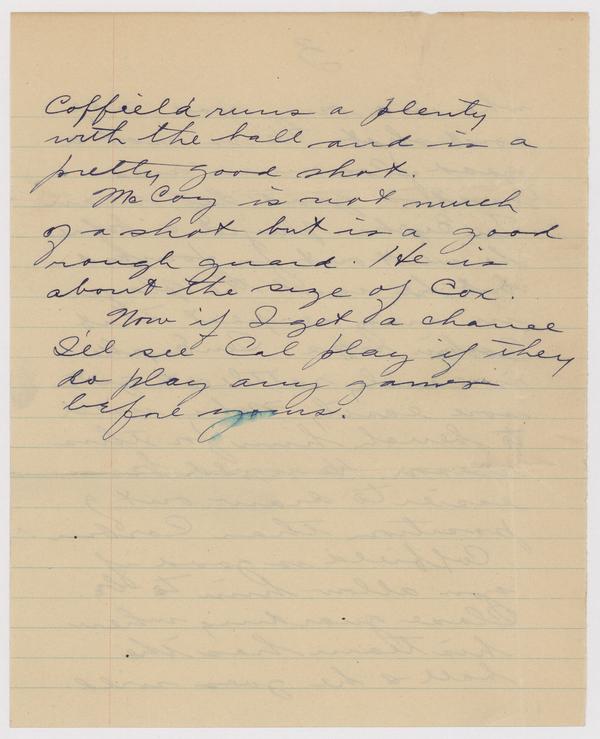 Coffield runs a plenty
with the ball and is a
pretty good shot.
McCoy is not much
of a shot but is a good
rough guard. He is
about the size of Cox.
Now if I get a chance
I'll see Cal play if they
do play any games
before yours.